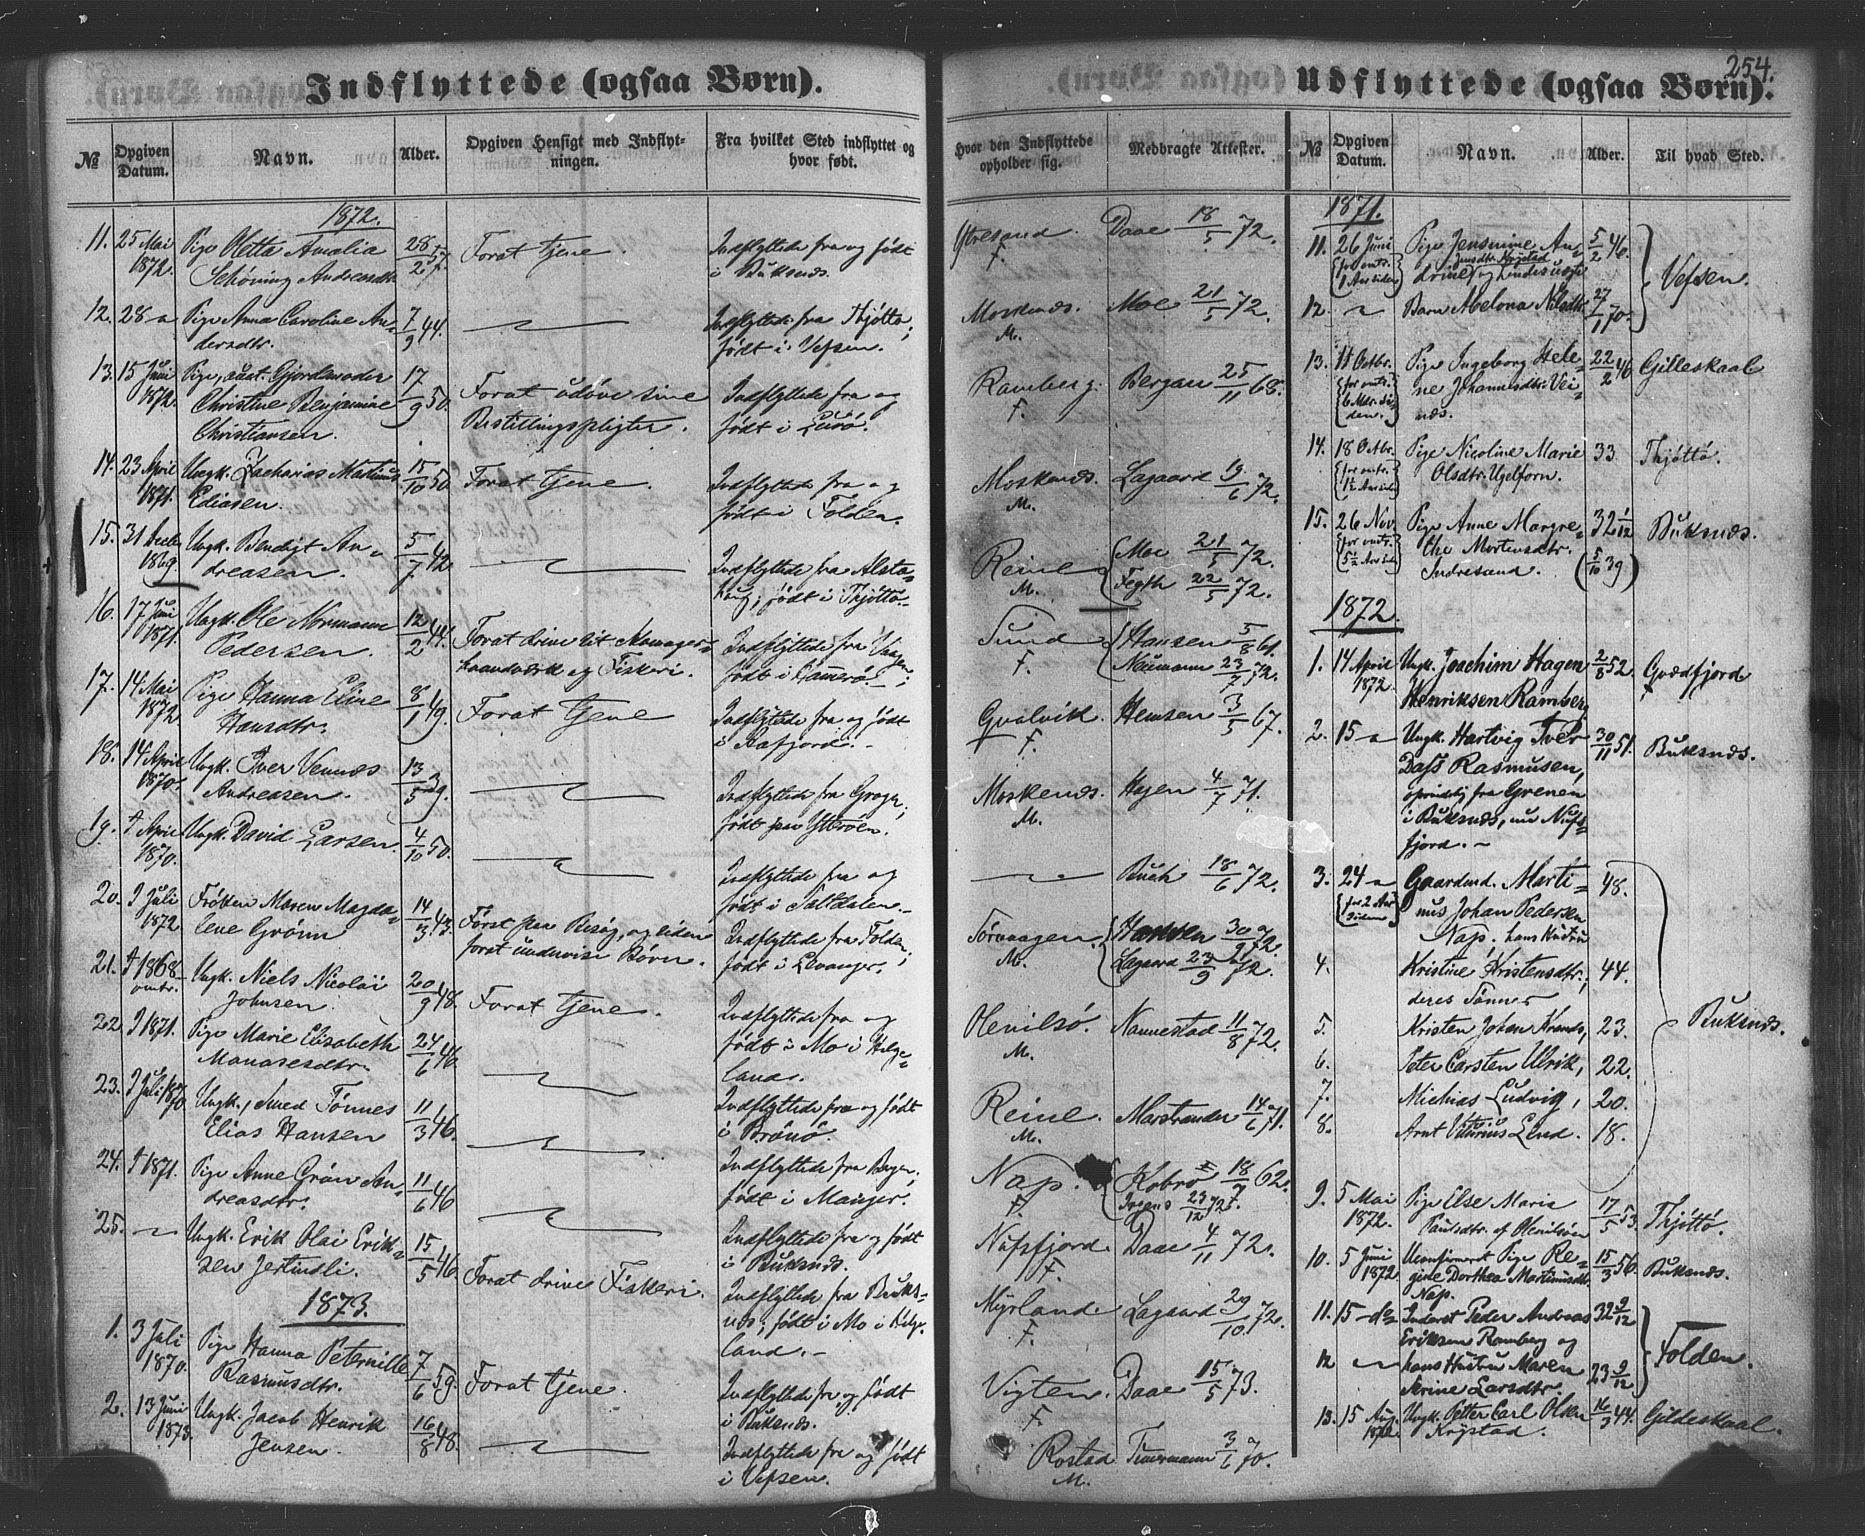 254.
Indflyttede (ogsaa Børn).
№
Opgiven Datum.
Navn.
Alder.
Opgiven Hensigt med Indflyt-
ningen.
Fra hvilket Sted indflyttet og
hvor født.
1872.
11. 25 Mai Pige Oletta Amalia 28 For at tjene. Indflyttede fra og født
1872. Schöning Andreasdtr. 2 57. i Buksnæs.
12. 28 Pige Anna Caroline An- 7 Indflyttede fra Thjøttø;
dersdtr. 9 44. født i Vefsen.
13. 15 Juni Pige, Gjordemoder 17 For at udöve sine Indflyttede fra og
1872. Christine Benjamine 9 50. Bestillingspligter. født i Lurø.
Christiansen.
14. 23 April Ungk. Zacharias Martinus 15 For at tjene. Indflyttede fra og
1871. Ediasen. 10 50. født i Folden.
15. 31 Decbr. Ungk. Bendigt An- 5 Indflyttede fra Alsta-
1869. dreasen. 7 42. haug; født i Thjøttø.
16. 17 Juni Ungk. Ole Normann 12 For at drive sit Indflyttede fra Vaagen;
1871. Pedersen. 2 44. haandværk og Fiskeri. født i Hamerø.
17. 14 Mai Pige Hanna Eline 8 For at tjene Indflyttede fra og født
1872 Hansdtr. 1 49. i
18. 14 April Ungk. Iver Vennes 13 Indflyttede fra
1870. Andreasen. 5 39. født paa Ytterøen.
19. April Ungk. David Larsen. 4 Indflyttede fra og
1870. 10 50. født i Saltdalen.
20. Juli Frøken Maren Magda- 14 Først paa Besøg, og siden Indflyttede fra Folden;
1872. lene Grönn 3 43. for at undervise Börn. født i Levanger.
21. 1868 Ungk. Niels Nicolai 20 For at tjene. Indflyttede fra og
omtr. Johnsen. 9 48. født i Mo i Helge-
22. 1871. Pige Marie Elisabeth 24 land.
Manasesdtr. 6 46. Indflyttede fra og født
23. Juli 1870 Ungk., Smed Tönnes 11 i Brönö.
Elias Hansen 3 46. Indflyttede fra Bergen;
24. 1871. Pige Anne Grön An- 11 født i Manger.
dreasdtr. 6 46 Indflyttede fra og født
25. Ungk. Erik Olai Erik- 15 i Buksnæs.
sen Jertindli. 5 46. For at drive Fiskeri. Indflyttede fra Buks-
1873. næs; født i Mo i Helge-
land.
1. 3 Juli Pige Hanna Peternille 7 For at tjene. Indflyttede fra og født
1870. Rasmusdtr. 6 59. i Buksnæs.
2. 13 Juni Ungk. Jacob Henrik 16 Indflyttede fra og født
1873. Jensen. 8 48. i Vefsen.
Hvor den Indflyttede
opholder sig.
Medbragte Attester.
Ytresand. F. Daae 18/5 72.
Moskenæs. M. Moe 21/5 72.
Ramberg. F. Bergan 25/11 68.
Moskenæs. M. Lagaard 19/6 72.
Reine M. Moe 21/5 72.
Fegth 22/5 72.
Sund F. Hansen 5/8 61.
Naumann 23/7 72.
Qvalvik. F. Hemsen 3/5 67.
Moskenæs. M. Hagen 4/7 71.
Buch 18/6 72.
Sörvaagen. M. Hansen 30/9 72.
Lagaard 23/9 72.
Olenilsö. M. Nannestad 11/8 72.
Reine. M. Marstrander 14/6 71.
Nap. F. Kobro 18/7 62.
23/12 72.
Nufsfjord. F. Daae 4/11 72.
Myrland. F. Lagaard 29/10 72.
Vigten. F. Daae 15/5 73.
Rostad M. Timermann 3/6 70.
Udflyttede (ogsaa Børn).
№
Opgiven Datum.
Navn.
Alder.
Til hvad Sted.
1871.
11. 26 Juni Pige Jensmine An- 5/2 46. Vefsen.
(for omtr. Jensdtr. Krystad
1 Aar siden) drine, og hendes uægte
12. Barn Abelona Nilsdtr. 27/1 70.
13. 11 Octbr. Pige Ingeborg Hele- 22/2 46 Gilleskaal
(for omtr. ne Johannesdtr. Vei-
6 Mdr. si- næs.
den.)
14. 18 Octbr. Pige Nicoline Marie 33 Thjøttø.
(for omtr. Olsdtr. Ugelforn.
1½ Aar siden)
15. 26 Nov. Pige Anne Margre- 32 1/12 Buksnæs.
(for omtr. the Mortensdtr. (5/10 39)
5½ Aar siden) Indresand.
1872.
1. 14 April Ungk. Joachim Hagen 2/8 52. Gvædfjord
1872. Henriksen Ramberg
2. 15 Ungk. Hartvig Iver 30/11 51. Buksnæs.
Dass Rasmusen,
oprindelig fra Grenen
i Buksnæs, nu Nufs-
fjord.
3. 24 Gaardmd. Marti- 48.
(for 2 Aar nus Johan Pedersen
siden) Nap, hans Hustru
4. Kristine Kristensdtr; 44.
deres Sönner
5. Kristen Johan Krands, 23. Buksnæs.
6. Peter Carsten Ulrik, 22.
7. Michias Ludvig, 20.
8. Arnt Lind. 18.
9. 5 Mai Pige Else Maria 17/5 53. Thjøttø.
1872. Paulsdtr. af Olenilsöen
10. 5 Juni Uconfirmeret Pige Re- 15/3 56. Buksnæs.
1872. gine Dorthea Martinusdtr.
Nap.
11. 15 do Inderst Peder Andreas 32 9/12 Folden.
Eriksen Ramberg og
12 hans Hustru Maren 23 9/12
Serine Larsdtr.
13. 15 Aug. Ungk. Petter Carl Olsen 16/3 44. Gildeskaal.
1872. Krystad.